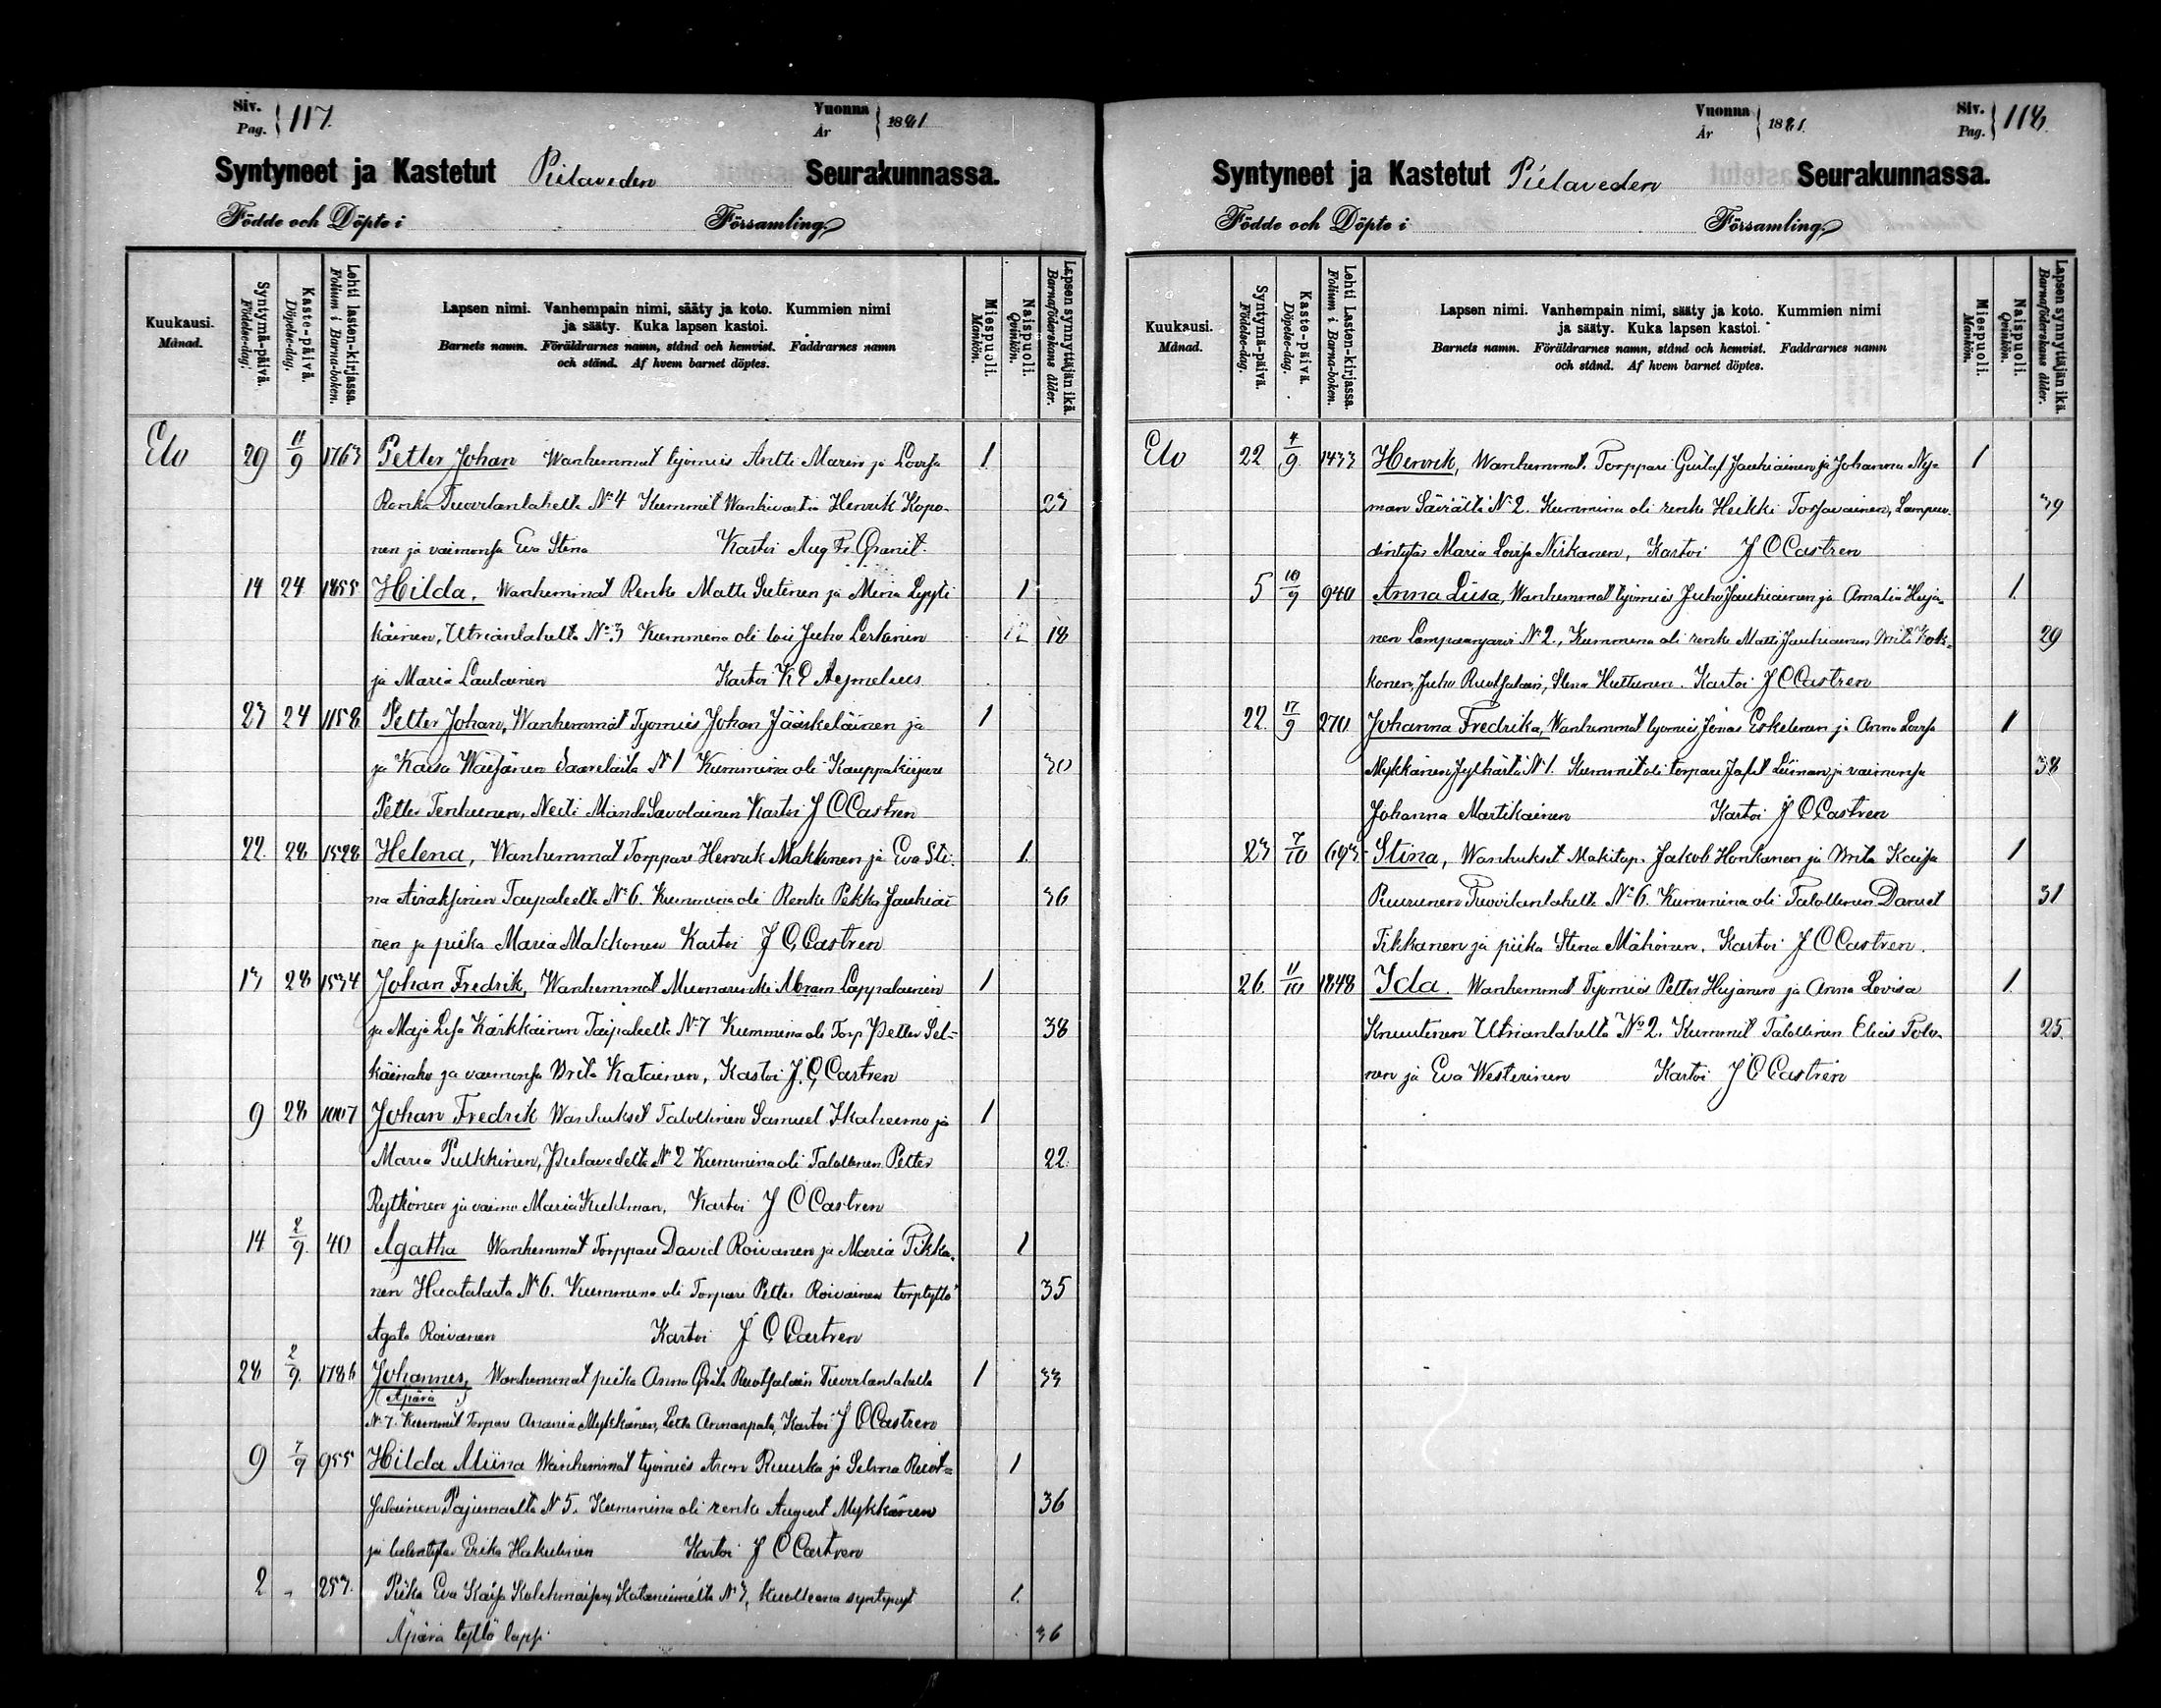 Siv.
Pag. 117.
Vuonna
År 1881
Syntyneet ja Kastetut Pielaveden Seurakunnassa.
Födde och Döpte i Församling.
Kuukausi.
Månad.
Syntymä-päivä.
Födelse-dag.
Kaste-päivä.
Döpelse-dag.
Lehti lasten-kirjassa.
Folium i Barna-boken.
Lapsen nimi. Vanhempain nimi, sääty ja koto. Kummien nimi
ja sääty. Kuka lapsen kastoi.
Barnets namn. Föräldrarnes namn, stånd och hemvist. Faddrarnes namn
och stånd. Af hvem barnet döptes.
Miespuoli.
Mankön.
Naispuoli.
Qvinkön.
Lapsen synnyttäjän ikä.
Barnaföderskans ålder.
Elo 29 11/9 1763 Petter Johan Wanhemmat työmies Antti Marin ja Lovisa 1
Ronka Tuovilanlahelta No 4 Kummit Wanhivartia Henrik Kopo- 23
nen ja vaimonsa Eva Stina Kastoi Aug Fr. Granit.
14 24 1855 Hilda, Wanhemmat Renki Matti Sutinen ja Mina Lyyti 1
käinen, Utrianlahelta No 3 Kummina oli loi Juho Leskinen 12 18
ja Maria Laulainen Kastoi K E Aejmelius
23 24 1158 Petter Johan, Wanhemmat Tyomies Johan Jääskeläinen ja 1
ja Kaisa Waisänen Saarelaita No 1 Kummina oli Kauppakirjuri 30
Petter Tenhunen, Neiti Manda Savolainen Kastoi J C Castren
22. 28 1528 Helena, Wanhemmat Torppari Henrik Makkonen ja Eva Sti- 1.
na Airaksinen Taipaleelta No 6. Kummina oli Renki Pekka Jauhiai 36
nen ja piika Maria Makkonen Kastoi J C Castren
13 28 1534 Johan Fredrik, Wanhemmat Abram Lappalainen 1
ja Maja Lisa Kärkkäinen Taipaleelta No 7 Kummina oli Torp Petter Sel- 38
käinaho ja vaimonsa Brita Katainen, Kastoi J. C Castren
9 28 1007 Johan Fredrik Wanhukset Talollinen Samuel Ikäheimo ja 1
Maria Pulkkinen, Pielavedelta No 2 Kummina oli Talollinen Petter 22
Rytkönen ja vaimo Maria Kuhlman, Kastoi J C Castren
14 2/9. 40 Agatha Wanhemmat Torppari David Roivanen ja Maria Tikka- 1
nen Haatalasta No 6. Kummina oli Torpari Petter Roivainen torptyttö 35
Agata Roivanen Kastoi J C Castren
28 2/9. 1786 Johannes, Wanhemmat piika Anna Brita Ruotsalain Tuovilanlahelta 1 33
(Äpärä)
No 7. Kummit Torpari Anania Mykkänen, Kastoi J C Castren
9 7/9 955 Hilda Miina Wanhemmat työmies Aron Ruuska ja Selma Ruot- 1
salainen Pajumaelta No 5. Kummina oli renki August Mykkänen 36
ja Erika Hakulinen Kastoi J C Castren
2 " 253. Piika Eva Kaisa Kolehmaisen, Katanimelta No 3, kuolleena syntynyt 1.
Äpärä tyttö lapsi 36
Siv.
Pag. 118.
Vuonna
År 1881.
Syntyneet ja Kastetut Pielaveden Seurakunnassa.
Födde och Döpte i Församling.
Kuukausi.
Månad.
Syntymä-päivä.
Födelse-dag.
Kaste-päivä.
Döpelse-dag.
Lehti Lasten-kirjassa.
Folium i Barna-boken.
Lapsen nimi. Vanhempain nimi, sääty ja koto. Kummien nimi
ja sääty. Kuka lapsen kastoi.
Barnets namn. Föräldrarnes namn, stånd och hemvist. Faddrarnes namn
och stånd. Af hvem barnet döptes.
Miespuoli.
Mankön.
Naispuoli.
Qvinkön.
Lapsen synnyttäjän ikä.
Barnaföderskans ålder.
Elo 22 4/9. 1433 Henrik, Wanhemmat. Torppari Gustaf Jauhiainen ja Johanna Ny- 1
man Säviältä No 2. Kummina oli renki Heikki Torsavainen, Lampuo- 39
dintytär Maria Lovisa Niskanen, Kastoi J C Castren
5 18/9 940 Anna Liisa, Wanhemmat työmies Juho Jauhiainen ja Amalia Huja- 1.
nen Lampaanjärvi No 2., Kummina oli renki Matti Jauhiainen Brita Kok- 29
konen, Juho Ruotsalain, Stina Huttunen. Kastoi J C Castren
22. 17/9 270 Johanna Fredrika, Wanhemmat työmies Jonas Eskelinen ja Anna Lovisa 1
Mykkänen Jylhästä No 1. Kummit oli torpari Jafet Liiman ja vaimonsa 38
Johanna Martikainen Kastoi J C Castren
23 7/10 693 Stina, Wanhukset Makitup. Jakob Honkanen ja Brita Kaisa 1
Puurunen Tuovilanlahelta No 6. Kummina oli Talollinen Daniel 31
Tikkanen ja piika Stina Mähönen, Kastoi J C Castren.
26. 11/10 1848 Ida. Wanhemmat Tyomies Petter Hujanen ja Anna Lovisa 1.
Knuutinen Utrianlahelta No 2. Kummit Talollinen Elias Tolo- 25.
nen ja Eva Westerinen Kastoi J C Castren